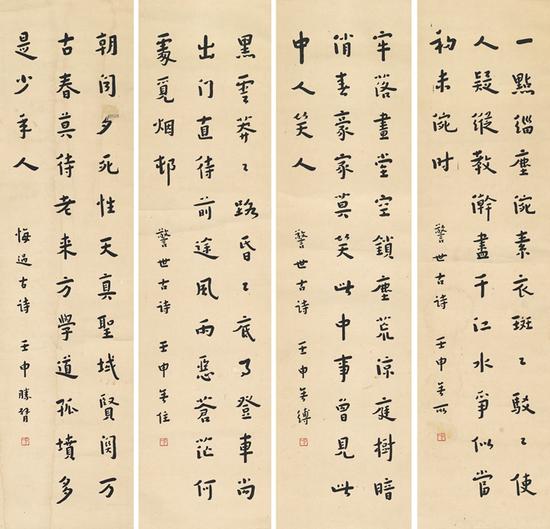 一點緇塵涴素衣斑〻駁〻使
人疑縱教澣盡千江水爭似當
初未涴时 警世古诗 壬申無所
牢落畫堂空鎖塵荒涼庭樹暗
消春豪家莫笑此中事曾見此
中人笑人 警世古诗 壬申無縛
黑雲莽〻路昏〻底事登車尚
出门直待前途風雨惡蒼茫何
處覓烟邨 警世古诗 壬申無住
朝闻夕死性天真聖域賢関万
古春莫待老来方學道孤墳多
是少年人 悔過古诗 壬申勝臂